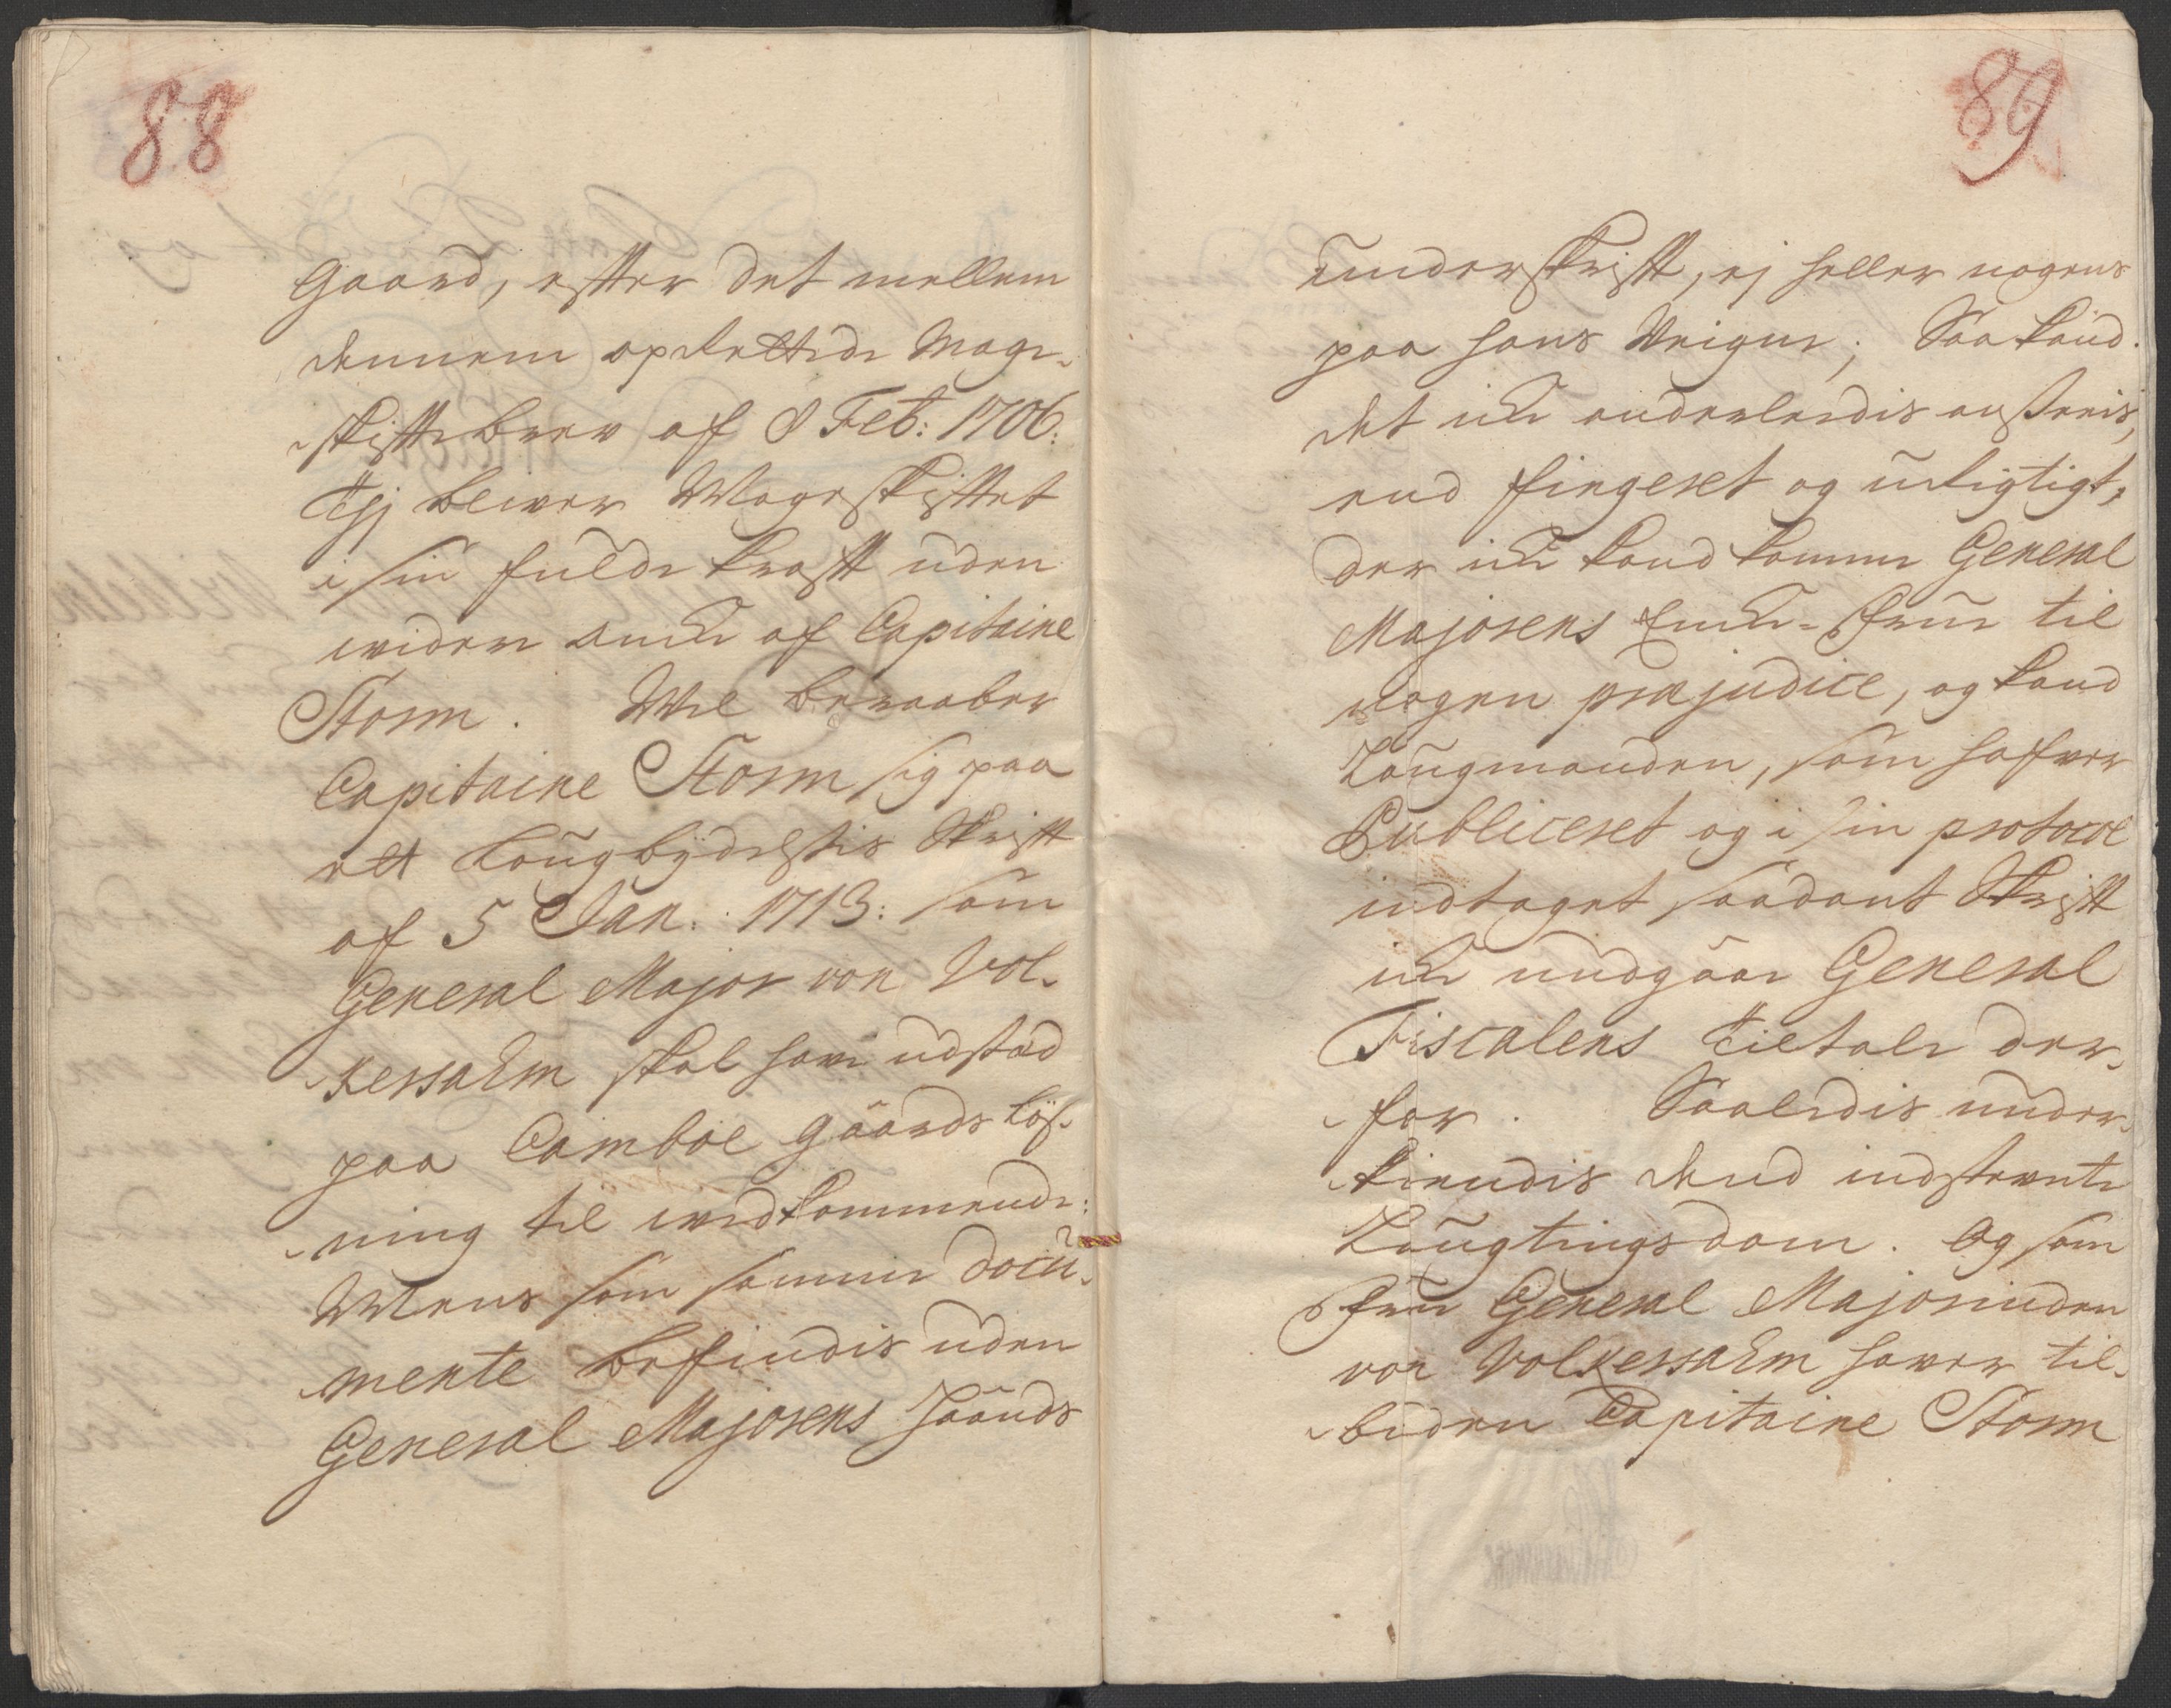 88
Gaard, efter det mellem
dennem oprettede Mage-
skifte brev af 8 Feb: 1706.
Thj bliver Mageskiftet
i sin fulde kraft uden
videre ancke af Capitaine
Storm. Vel beraaber
Capitaine Storm sig paa
ett Laugbydelsis Skrift
af 5 Jan: 1713: som
General Major von Vol-
kersahm skal have udstæd
paa Camboe Gaards Løs-
ning til vedkommende:
Mens som samme docu-
mente befindis uden
General Majorens Haands
89
underskrift, ej heller nogens
paa hans Veigne; Saa kand
det icke anderledis ansees,
end fingeret og urigtigt,
der icke kand komme General
Majorens Encke-Frue til
nogen præjudice, og kand
Laugmanden, som hafver
Publiceret og i sin protocol
indtaget saadant Skrift
icke undgaae General
Fiscalens Tiltale der-
for. Saaledis under-
kiendis dend indstevnte
Laugtingsdom. Og som
Frue General Majorinden
von Volkersahm haver til-
buden Capitaine Storm